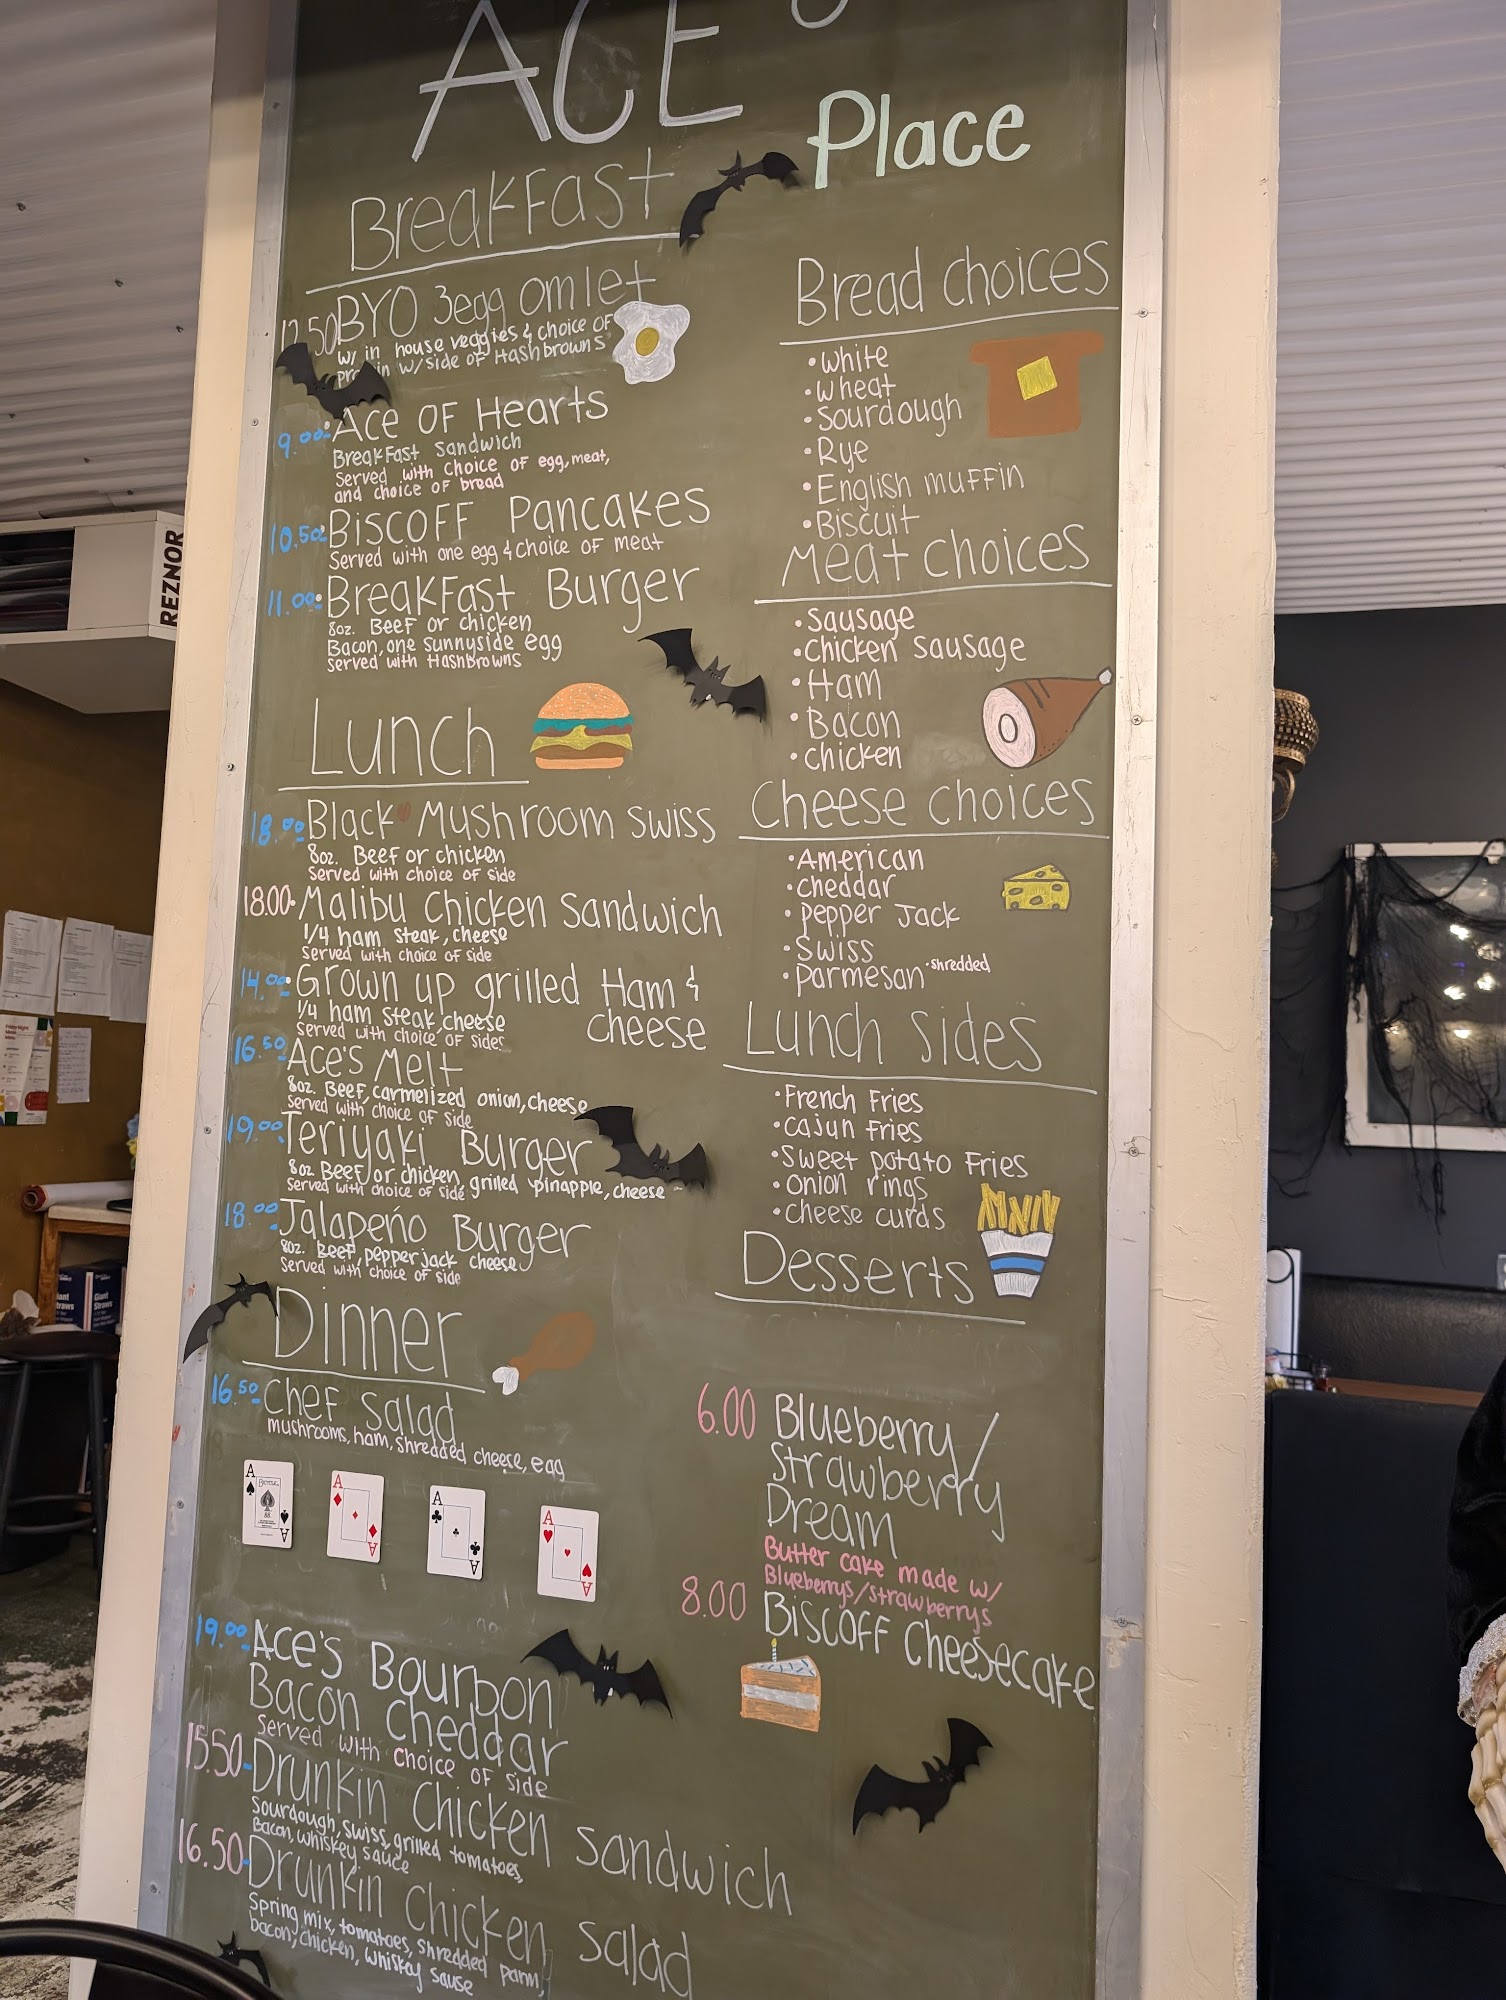 ACE's
Place
Breakfast
12.50 BYO 3egg omlet
w/ in house veggies & choice of
protein w/side of Hashbrowns
9.00 Ace of Hearts
Breakfast Sandwich
Served with choice of egg, meat,
and choice of bread
10.50 Biscoff Pancakes
Served with one egg & choice of meat
11.00 Breakfast Burger
8oz. Beef or chicken
Bacon, one sunnyside egg
served with Hashbrowns
Lunch
18.00 Black Mushroom Swiss
8oz. Beef or chicken
Served with choice of side
18.00 Malibu Chicken Sandwich
1/4 ham steak, cheese
Served with choice of side
14.00 Grown up grilled Ham &
cheese
1/4 ham steak, cheese
Served with choice of sides
16.50 Ace's Melt
8oz. Beef, carmelized onion, cheese
Served with choice of side
19.00 Teriyaki Burger
8oz. Beef or chicken, grilled pinapple, cheese
Served with choice of side
18.00 Jalapeño Burger
8oz. Beef, pepperjack cheese
Served with choice of side
Dinner
16.50 Chef Salad
mushrooms, ham, shredded cheese, egg
A A
A A
A A
A A
19.00 Ace's Bourbon
Bacon Cheddar
Served with choice of side
15.50 Drunkin Chicken Sandwich
Sourdough, swiss, grilled tomatoes,
Bacon, whiskey sauce
16.50 Drunkin Chicken Salad
Spring mix, tomatoes, shredded parm,
bacon, chicken, whiskey sause
Bread choices
• White
• Wheat
• Sourdough
• Rye
• English muffin
• Biscuit
Meat choices
• Sausage
• Chicken Sausage
• Ham
• Bacon
• Chicken
Cheese choices
• American
• cheddar
• pepper Jack
• Swiss
• Parmesan • shredded
Lunch sides
• French Fries
• Cajun Fries
• Sweet potato Fries
• Onion rings
• cheese curds
Desserts
6.00 Blueberry/
Strawberry
Dream
Butter cake made w/
Blueberrys/strawberrys
8.00 Biscoff Cheesecake
REZNOR
Giant
Straws